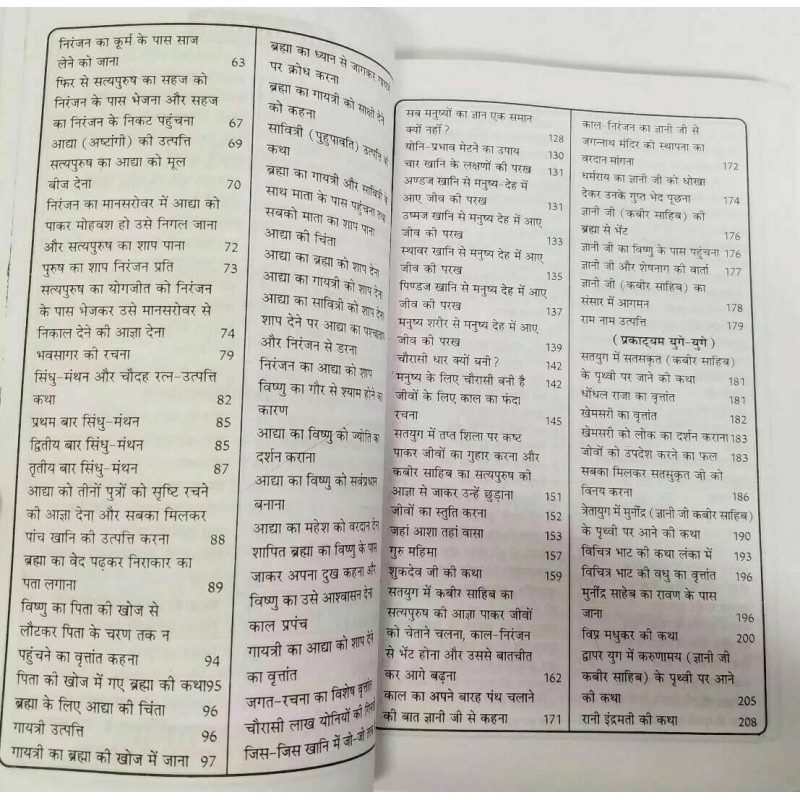 निरंजन का कूर्म के पास साज
लेने को जाना 63
फिर से सत्यपुरुष का सहज को
निरंजन के पास भेजना और सहज
का निरंजन के निकट पहुंचना 67
आद्या (अष्टांगी) की उत्पत्ति 69
सत्यपुरुष का आद्या को मूल
बीज देना 70
निरंजन का मानसरोवर में आद्या को
पाकर मोहवश हो उसे निगल जाना
और सत्यपुरुष का शाप पाना 72
पुरुष का शाप निरंजन प्रति 73
सत्यपुरुष का योगजीत को निरंजन
के पास भेजकर उसे मानसरोवर से
निकाल देने की आज्ञा देना 74
भवसागर की रचना 79
सिंधु-मंथन और चौदह रत्न-उत्पत्ति
कथा 82
प्रथम बार सिंधु-मंथन 85
द्वितीय बार सिंधु-मंथन 85
तृतीय बार सिंधु-मंथन 87
आद्या को तीनों पुत्रों को सृष्टि रचने
की आज्ञा देना और सबका मिलकर
पांच खानि की उत्पत्ति करना 88
ब्रह्मा का वेद पढ़कर निराकार का
पता लगाना 89
विष्णु का पिता की खोज से
लौटकर पिता के चरण तक न
पहुंचने का वृत्तांत कहना 94
पिता की खोज में गए ब्रह्मा की कथा95
ब्रह्मा के लिए आद्या की चिंता 96
गायत्री उत्पत्ति 96
गायत्री का ब्रह्मा की खोज में जाना 97
ब्रह्मा का ध्यान से जागकर
पर क्रोध करना
ब्रह्मा का गायत्री को साक्षी देने
को कहना
सावित्री (पुहुपावति) उत्पत्ति की
कथा
ब्रह्मा का गायत्री और सावित्री के
साथ माता के पास पहुंचना तथा
सबको माता का शाप पाना
आद्या की चिंता
आद्या का ब्रह्मा को शाप देना
आद्या का गायत्री को शाप देना
आद्या का सावित्री को शाप देना
शाप देने पर आद्या का पश्चाताप
और निरंजन से डरना
निरंजन का आद्या को शाप
विष्णु का गौर से श्याम होने का
कारण
आद्या का विष्णु को ज्योति का
दर्शन कराना
आद्या का विष्णु को सर्वप्रधान
बनाना
आद्या का महेश को वरदान देना
शापित ब्रह्मा का विष्णु के पास
जाकर अपना दुख कहना और
विष्णु का उसे आश्वासन देना
काल प्रपंच
गायत्री का आद्या को शाप देने
का वृत्तांत
जगत-रचना का विशेष वृत्तांत
चौरासी लाख योनियों की
जिस-जिस खानि में जो-जो
सब मनुष्यों का ज्ञान एक समान
क्यों नहीं? 128
योनि-प्रभाव मेटने का उपाय 130
चार खानि के लक्षणों की परख 131
अण्डज खानि से मनुष्य-देह में
आए जीव की परख 131
उष्मज खानि से मनुष्य देह में आए
जीव की परख 133
स्थावर खानि से मनुष्य देह में आए
जीव की परख 135
पिण्डज खानि से मनुष्य देह में आए
जीव की परख 137
मनुष्य शरीर से मनुष्य देह में आए
जीव की परख 139
चौरासी धार क्यों बनी? 142
मनुष्य के लिए चौरासी बनी है 142
जीवों के लिए काल का फंदा
रचना 145
सतयुग में तप्त शिला पर कष्ट
पाकर जीवों का गुहार करना और
कबीर साहिब का सत्यपुरुष की
आज्ञा से जाकर उन्हें छुड़ाना 151
जीवों का स्तुति करना 152
जहां आशा तहां वासा 153
गुरु महिमा 157
शुकदेव जी की कथा 159
सतयुग में कबीर साहिब का
सत्यपुरुष की आज्ञा पाकर जीवों
को चेताने चलना, काल-निरंजन
से भेंट होना और उससे बातचीत
कर आगे बढ़ना 162
काल का अपने बारह पंथ चलाने
की बात ज्ञानी जी से कहना 171
काल-निरंजन का ज्ञानी जी से
जगन्नाथ मंदिर की स्थापना का
वरदान मांगना 172
धर्मराय का ज्ञानी जी को धोखा
देकर उनके गुप्त भेद पूछना 174
ज्ञानी जी (कबीर साहिब) की
ब्रह्मा से भेंट 176
ज्ञानी जी का विष्णु के पास पहुंचना 176
ज्ञानी जी और शेषनाग की वार्ता 177
ज्ञानी जी (कबीर साहिब) का
संसार में आगमन 178
राम नाम उत्पत्ति 179
(प्रकाट्यम युगे-युगे)
सतयुग में सतसुकृत (कबीर साहिब)
के पृथ्वी पर जाने की कथा 181
धोंधल राजा का वृत्तांत 181
खेमसरी का वृत्तांत 182
खेमसरी को लोक का दर्शन कराना183
जीवों को उपदेश करने का फल 183
सबका मिलकर सतसुकृत जी को
विनय करना 186
त्रेतायुग में मुनींद्र (ज्ञानी जी कबीर साहिब)
के पृथ्वी पर आने की कथा 190
विचित्र भाट की कथा लंका में 193
विचित्र भाट की वधु का वृत्तांत 196
मुनींद्र साहेब का रावण के पास
जाना 196
विप्र मधुकर की कथा 200
द्वापर युग में करुणामय (ज्ञानी जी
कबीर साहिब) के पृथ्वी पर आने
की कथा 205
रानी इंद्रमती की कथा 208